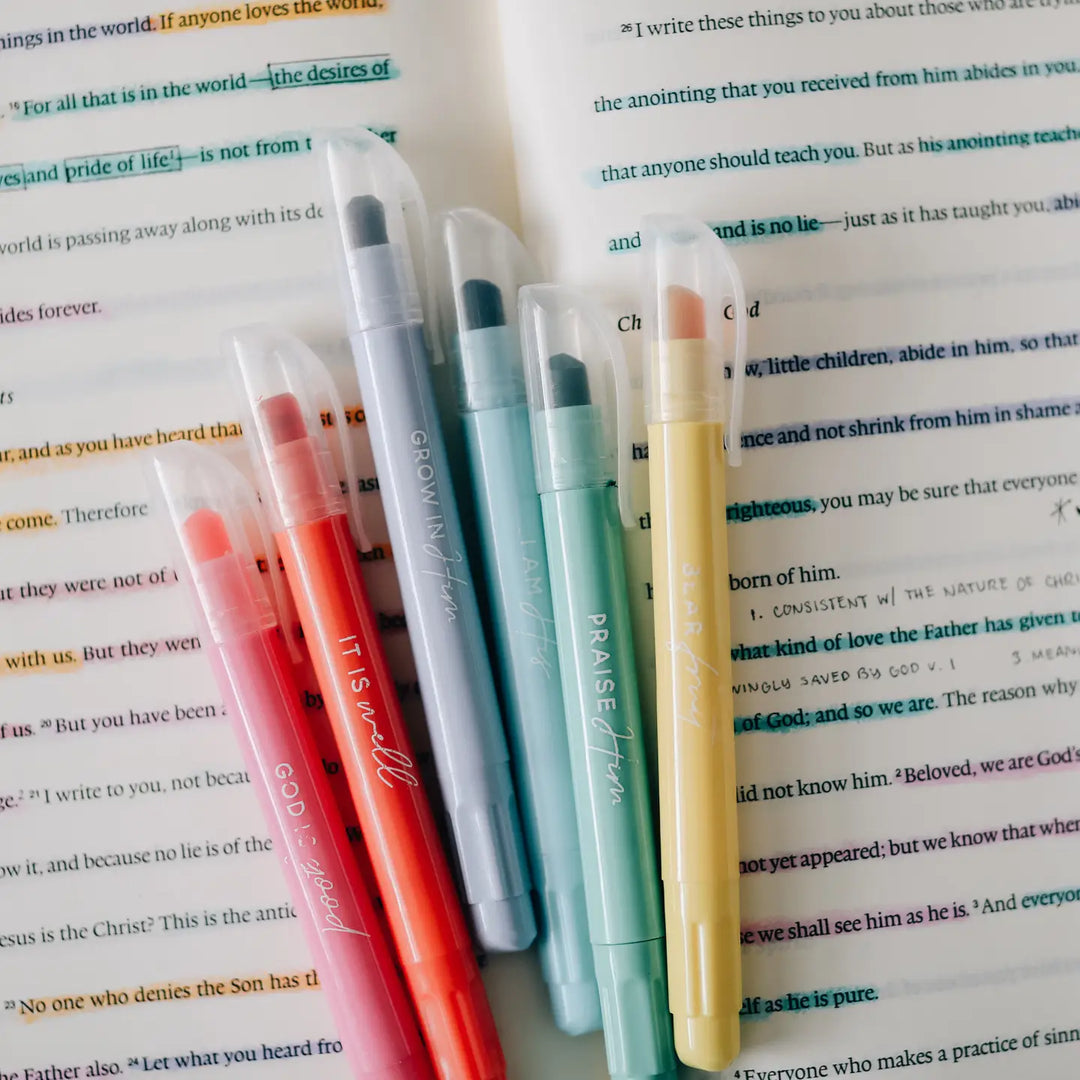 ings in the world. If anyone loves the world,
¹⁶ For all that is in the world—the desires of
and pride of life¹—is not from
world is passing away along with its
ides forever.
and as you have heard that
come. Therefore
they were not of
with us. But they
of us. ²⁰ But you have been
²¹ I write to you, not
it, and because no lie is of the
esus is the Christ? This is the
²³ No one who denies the Son has
Father also. ²⁴ Let what you heard
²⁶ I write these things to you about those who are
the anointing that you received from him abides in you,
that anyone should teach you. But as his anointing
and and is no lie—just as it has taught you,
little children, abide in him, so that
and not shrink from him in shame
righteous, you may be sure that everyone
born of him.
1. CONSISTENT W/ THE NATURE OF
what kind of love the Father has given
SAVED BY GOD V. 1 3
of God; and so we are. The reason why
did not know him. ² Beloved, we are God's
not yet appeared; but we know that when
we shall see him as he is. ³ And
as he is pure.
⁴ Everyone who makes a practice of
GOD IS good
IT IS well
GROW IN Him
I AM His
PRAISE Him
BEAR fruit